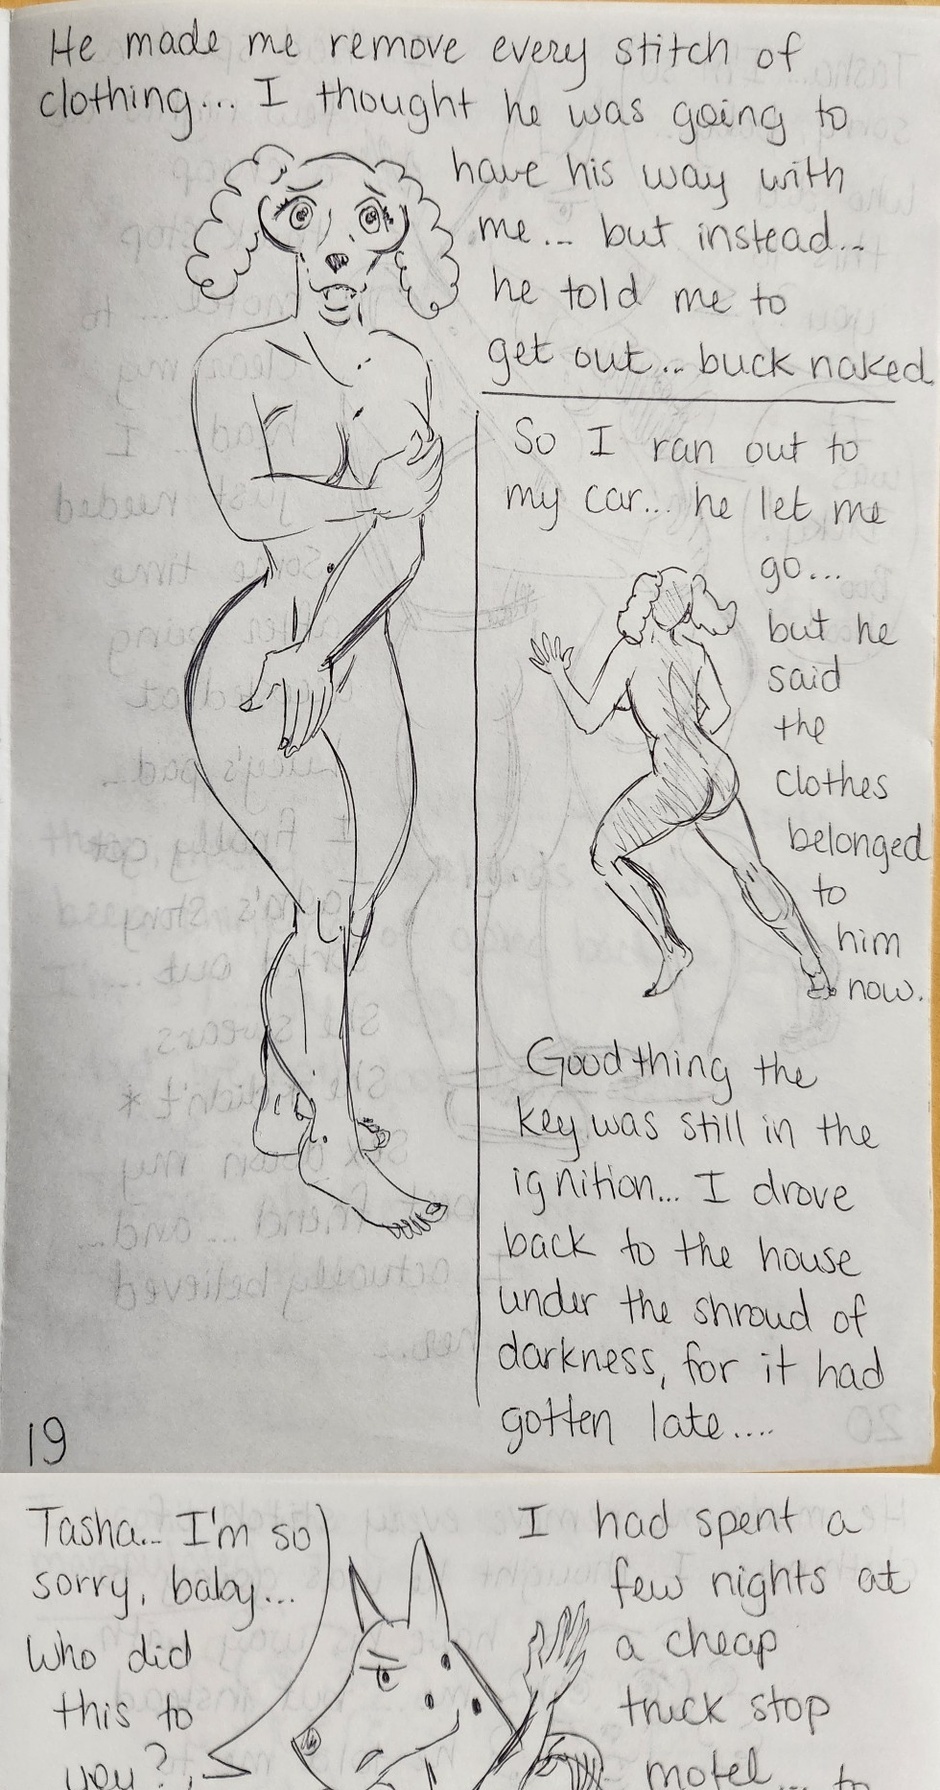 He made me remove every stitch of
clothing... I thought he was going to
have his way with
me... but instead...
he told me to
get out... buck naked.
So I ran out to
my car... he let me
go...
but he
said
the
clothes
belonged
to
him
now.
Good thing the
key was still in the
ignition... I drove
back to the house
under the shroud of
darkness, for it had
gotten late....
19
Tasha... I'm so
sorry, baby...
Who did
this to
you?
I had spent a
few nights at
a cheap
truck stop
motel... to